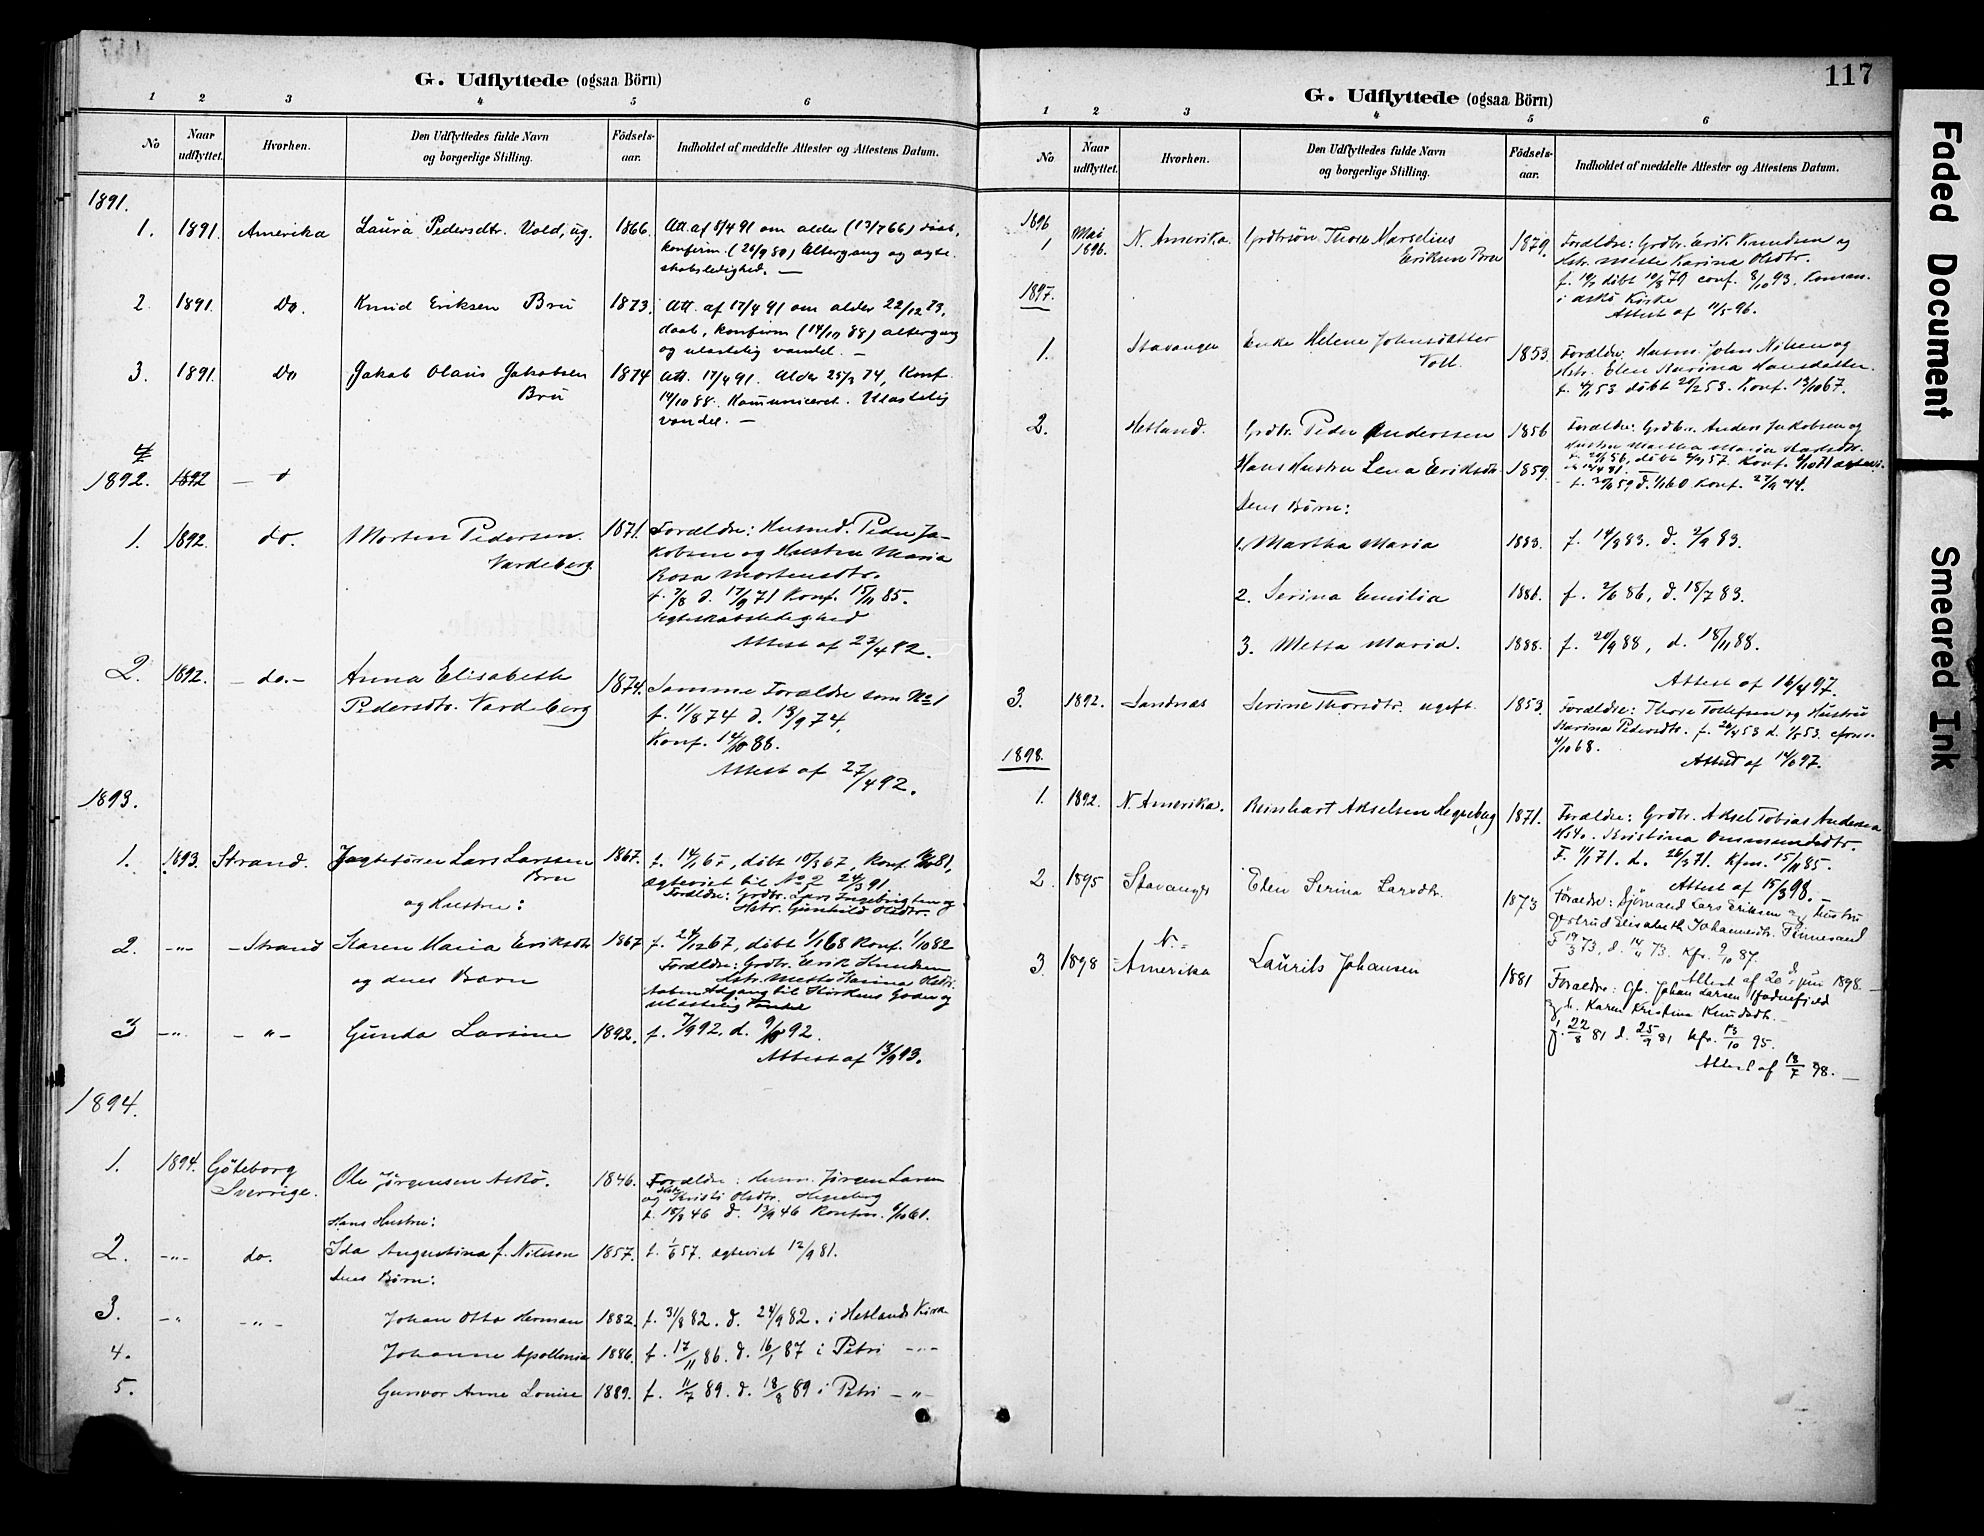 G. Udflyttede (ogsaa Börn)
1 2 3 4 5 6
No
Naar udflyttet.
Hvorhen.
Den Udflyttedes fulde Navn og borgerlige Stilling.
Födsels-aar.
Indholdet af meddelte Attester og Attestens Datum.
1891.
1. 1891. Amerika Laura Pedersdtr. Vold, ug. 1866. Att. af 8/4 91 om alder (13/7 66) daab,
konfirm. (26/9 80) Altergang og ægte-
skabsledighed. —
2. 1891. Do. Knud Eriksen Bru 1873. Att. af 17/4 91 om alder 22/12 73,
daab, konfirm (14/10 88) altergang
og ulastelig vandel. —
3. 1891. Do Jakob Olaus Jakobsen 1874 Att. 17/4 91. Alder 25/3 74, Konf.
Bru 14/10 88. Kommuniceret. Ulastelig
vandel. —
1892. 1892
1. 1892. do. Morten Pedersen 1871. Forældre: Husmd. Peder Ja-
Vardeberg kobsen og Hustru Maria
Rosa Mortensdtr.
f. 7/8 d. 17/9 71 Konf. 15/11 85.
Ægteskabsledighed
Attest af 23/4 92.
2. 1892. — do. — Anna Elisabeth 1874. Samme Forældre som No 1
Pedersdtr. Vardeberg f. 11/8 74 d. 13/9 74,
Konf. 14/10 88.
Attest af 27/4 92.
1893.
1. 1893. Strand. Jægtefører Lars Larssen 1867. f. 14/1 67, døbt 10/3 67, Konf.
Bru ægteviet til No 2 24/3 91
og Hustru: Forældre: Grdbr. Lars Ingebrigtsen og
Hstr. Gunhild Olsdtr.
2. —"— — Strand Karen Maria Eriksdtr 1867 f. 24/12 67, døbt 1/1 68 Konf. 1/10 82
og deres Barn Forældre: Grdbr. Erik Knudsen
Hstr. Mette Karina Olsdtr.
Aaben Adgang til Kirkens Goder og
ulastelig Vandel
3 —"— — " — Gunda Larsine 1892. f. 7/9 92. d. 9/10 92.
Attest af 13/9 93.
1894.
1. 1894. Göteborg Ole Jørgensen Askø. 1846. Forældre: Husm. Jörgen Larsen
Sverrige. og Hstr Kristi Olsdtr. Hegreberg
Hans Hustru: f. 18/8 46 d. 13/9 46 Konfm. 6/10 61.
2. —"— do. Ida Augustina f. Nilsson 1857. f. 1/6 57. Ægteviet 12/9 81.
Deres Børn:
3. — " — " — Johan Otto Herman 1882. f. 31/8 82. d. 24/9 82. i Hetlands Kirke
4. Johanne Apollonia 1886. f. 17/11 86. d. 16/1 87 i Petri —"—
5. Gunvor Anne Louise 1889. f. 11/7 89. d. 18/8 89 i Petri — " —
117
G. Udflyttede (ogsaa Börn)
1 2 3 4 5 6
No
Naar udflyttet.
Hvorhen.
Den Udflyttedes fulde Navn og borgerlige Stilling.
Födsels-aar.
Indholdet af meddelte Attester og Attestens Datum.
1896
1 Mai 1896. N. Amerika. Grdbrsön Thore Marselius 1879. Forældre: Grdbr. Erik Knudsen og
Eriksen Bru Hstr. Mette Karina Olsdtr.
døbt 10/8 79 conf. 8/10 93.
i Askø Kirke
Attest af 11/5 96.
1897.
1. Stavanger Enke Helene Johnsdatter 1853. Forældre: Husm. John Nilsen og
Voll. Hstr. Elen Karina Hansdatter
f. 4/1 53 døbt 20/2 53. Konf. 13/10 67.
2. Hetland. Grdbr. Peder Anderssen 1856 Forældre: Grdbr. Anders Jakobsen og
Hustru Martha Maria
Hans Hustru Lena Eriksdtr 1859.
Deres Børn:
1. Martha Maria 1883. f. 14/8 83. d. 2/9 83.
2. Serina Emilia 1886. f. 2/6 86, d. 18/7 83.
3. Metta Maria. 1888. f. 20/9 88, d. 18/11 88.
Attest af 16/4 97.
3. 1892. Sandnæs Serine Thorsdtr. ugift. 1853. Forældre: Thore Tollefsen og Hustru
Karina Pedersdtr. f. 26/4 53 d. 1/5 53.
4/10 68.
Attest af 14/6 97.
1898.
1. 1892. N. Amerika. Reinhart Akselsen Hegreberg 1871. Forældre: Grdbr. Aksel Tobias Andersen
Hst. Kristina Ommundsdtr.
F. 11/1 71. d. 26/3 71. Kfm. 15/11 85.
Attest af 15/3 98. —
2 1895 Stavanger Elen Serina Larsdtr. 1873 Forældre: Sjömand Lars Eriksen og hustru
Gertrud Elisabeth Johannesdtr. Finnesand
F 19/3 73, d. 14/4 73. Kfr. 9/10 87.
Attest af 20de juni 1898. —
3 1898 N. = Amerika Laurits Johansen 1881 Forældre: Johan Larsen
og h. Karen Kristina Knudsdtr. —
f. 22/8 81 d. 25/9 81 kfr. 13/10 95.
Attest af 18/7 98. —
Faded Document
Smeared Ink